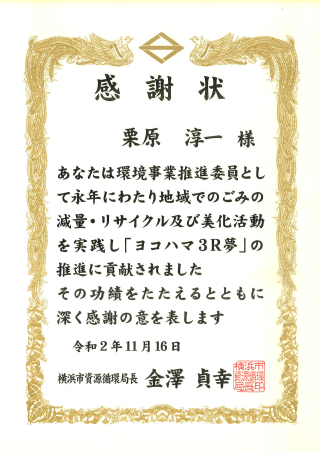 感謝状
栗原 淳一 様
あなたは環境事業推進委員とし
て永年にわたり地域でのごみの
減量・リサイクル及び美化活動
を実践し「ヨコハマ3R夢」の
推進に貢献されました
その功績をたたえるとともに
深く感謝の意を表します
令和2年11月16日
横浜市資源循環局長 金澤 貞幸